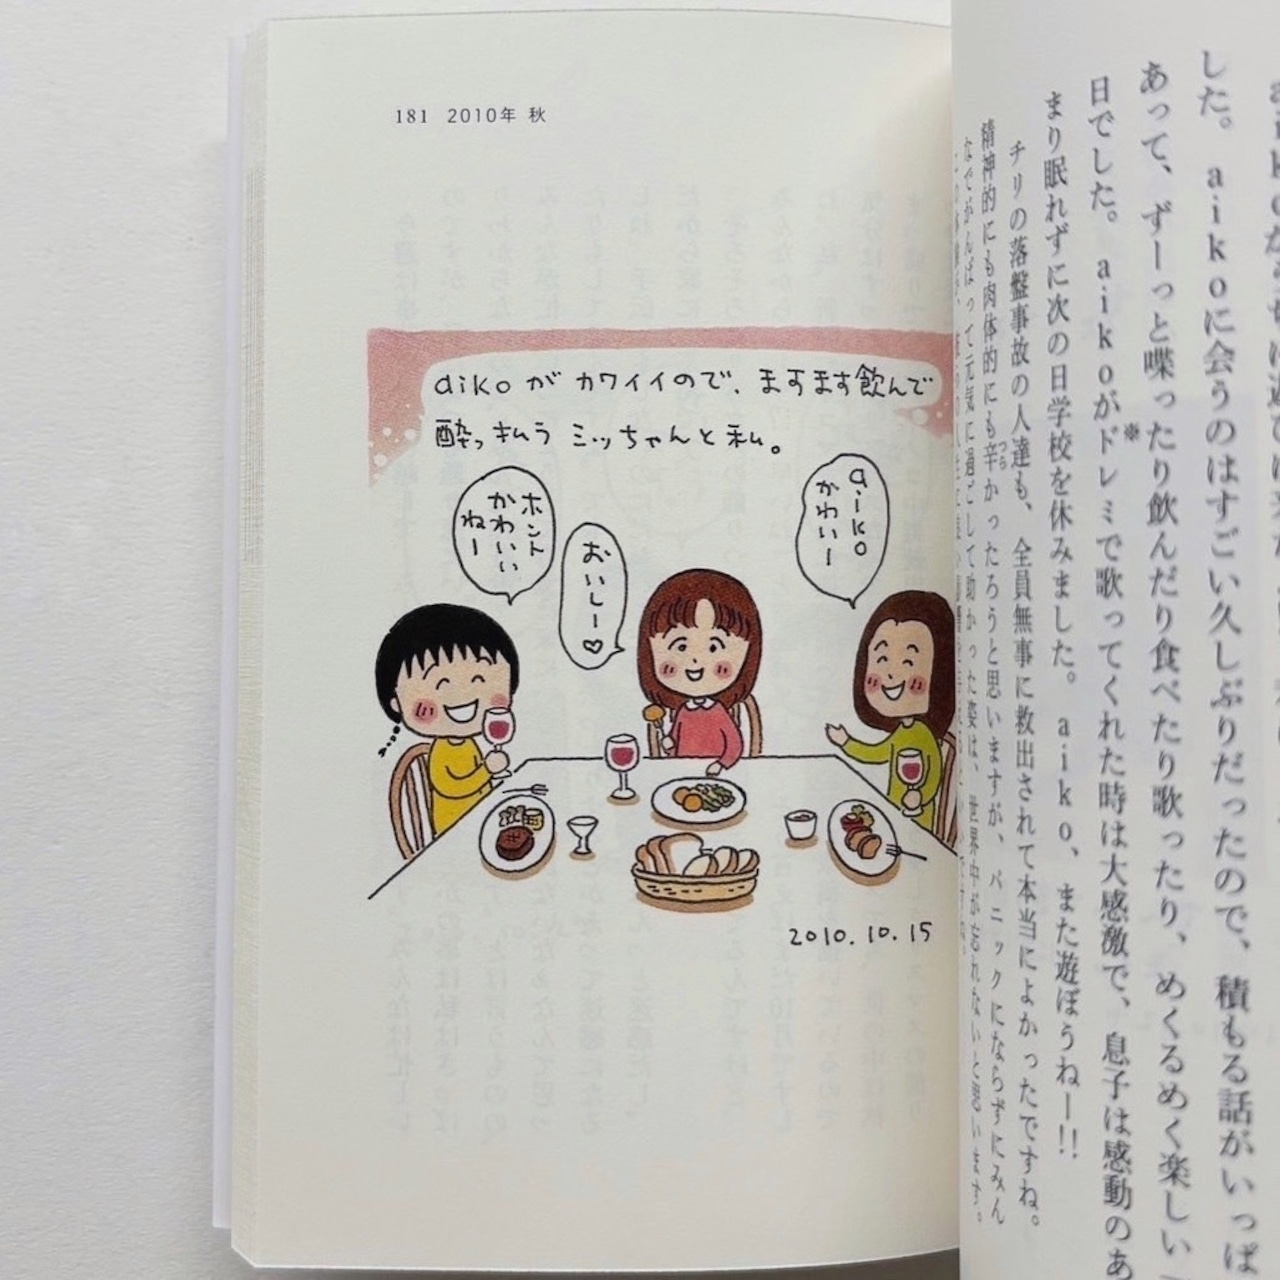 した。aikoに会うのはすごい久しぶりだったので、積もる話がいっぱ
あって、ずーっと喋ったり飲んだり食べたり歌ったり、めくるめく楽しい
日でした。aikoがドレミ※で歌ってくれた時は大感激で、息子は感動のあ
まり眠れずに次の日学校を休みました。aiko、また遊ぼうねー!!
チリの落盤事故の人達も、全員無事に救出されて本当によかったですね。
精神的にも肉体的にも辛かったろうと思いますが、パニックにならずにみん
つら
なでがんばって元気に過ごして助かった姿は、世界中が忘れないと思います。
181 2010年 秋
aikoがカワイイので、ますます飲んで
酔っ払うミッちゃんと私。
aiko
かわいー
おいしー♡
ホント
かわいい
ねー
2010.10.15